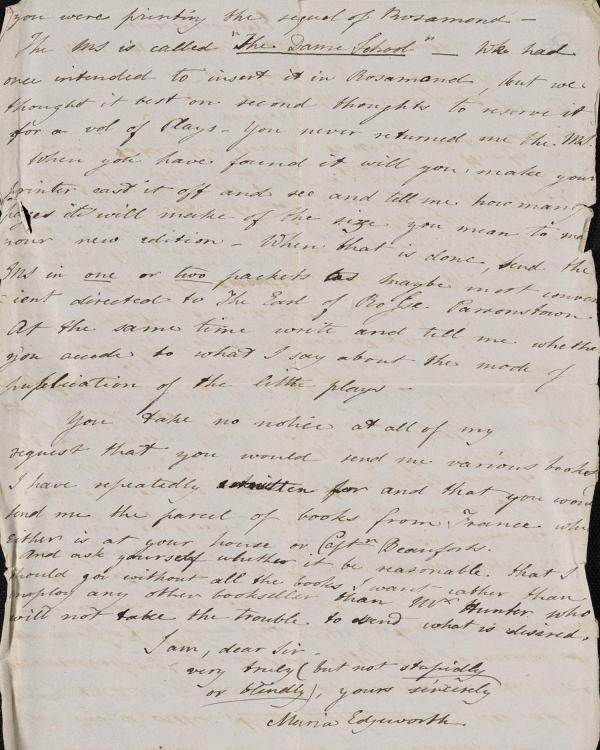 you were printing the sequel of Rosamond –
The MS is called "The Dame School" – We had
once intended to insert it in Rosamond, but we
thought it best on second thoughts to reserve it
for a vol of Plays – You never returned me the MS.
When you have found it will you make your
printer cast it off and see and tell me how many
pages it will make of the size you mean to
your new edition – When that is done, send the
MS in one or two packets as maybe most conven
ient directed to The Earl of Rosse Parsonstown.
At the same time write and tell me whether
you accede to what I say about the mode of
publication of the little plays –
You take no notice at all of my
request that you would send me various books
I have repeatedly written for and that you would
send me the parcel of books from France which
either is at your house or Captn Beauforts.
And ask yourself whether it be reasonable that I
should go without all the books I want rather than
employ any other bookseller than Mr Hunter who
will not take the trouble to send what is desired.
I am, dear Sir –
very truly (but not stupidly
or blindly), yours sincerely
Maria Edgeworth.